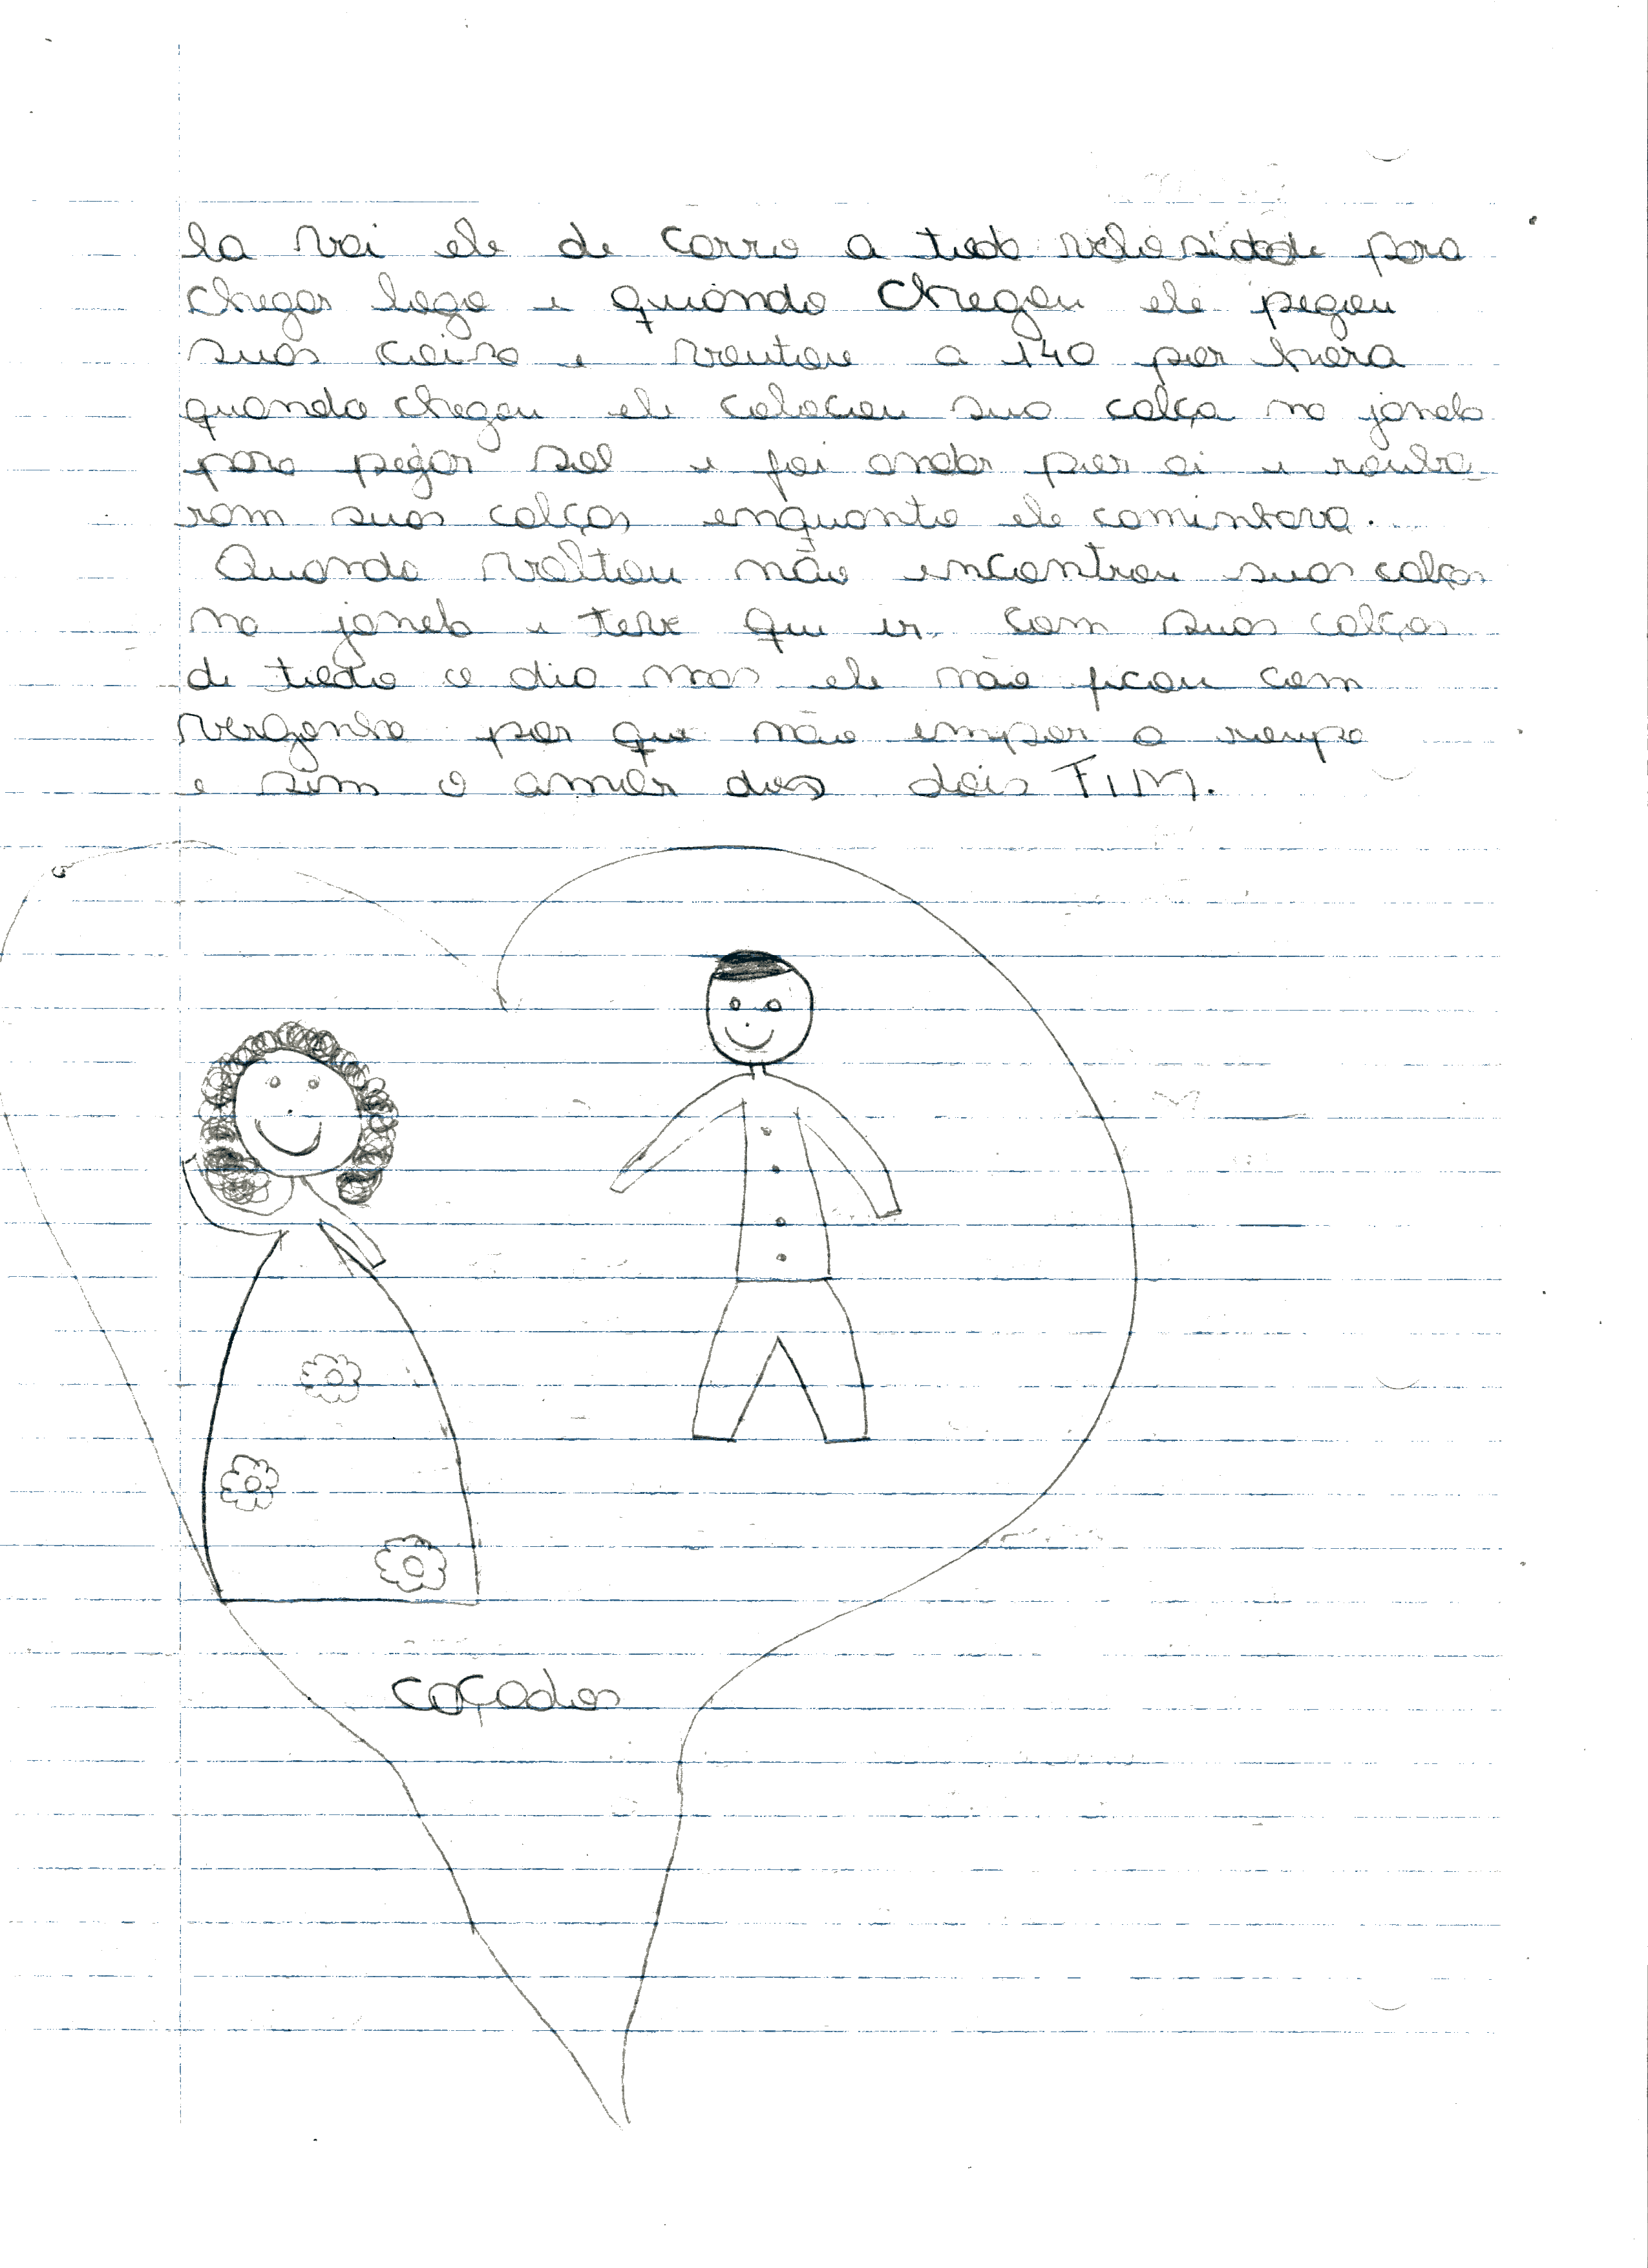 la vai ele de carro a toda velosidade para
chegar logo e quando chegou ele pegou
suas coisa e voutou a 140 por hora
quando chegou ele colocou sua calça na janela
para pegar sol e foi andar por ai e rouba-
ram suas calças enquanto ele caminhava.
Quando voltou não encontrou suas calças
na janela e teve que ir com suas calças
de todo o dia mas ele não ficou com
vergonha por que não impor a roupa
e sim o amor dos dois FIM.
caçados